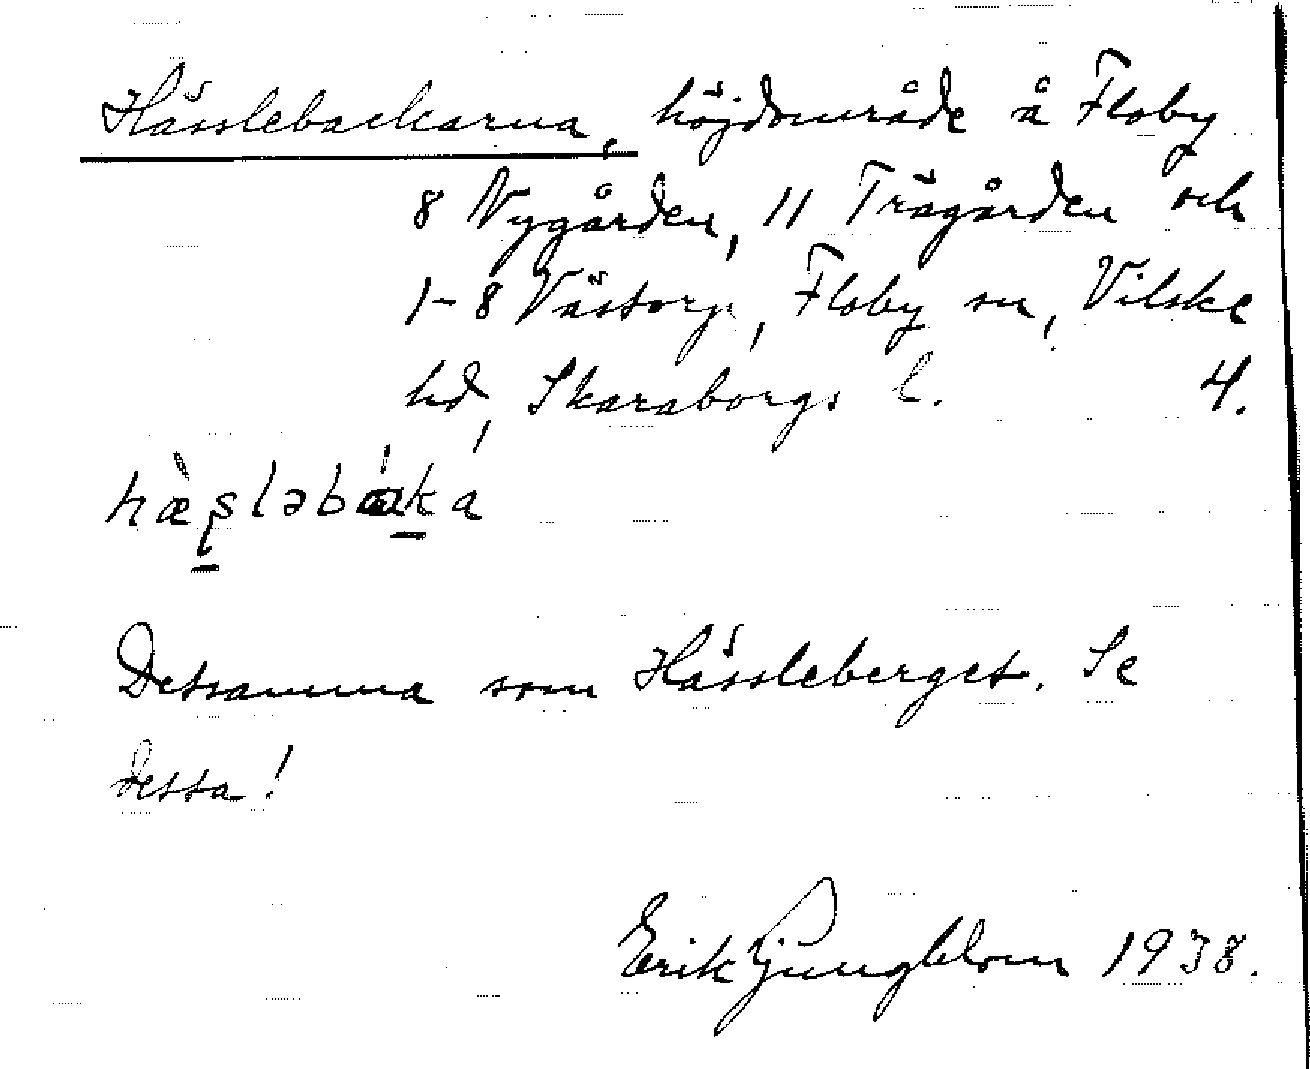 Hässlebackarna, höjdområde å Floby
8 Nygården, 11 Trägården och
1-8 Västorp, Floby sn, Vilske
hd, Skaraborgs l. 4.
Detsamma som Hässleberget. Se
detta!
Erik Ljungblom 1938.